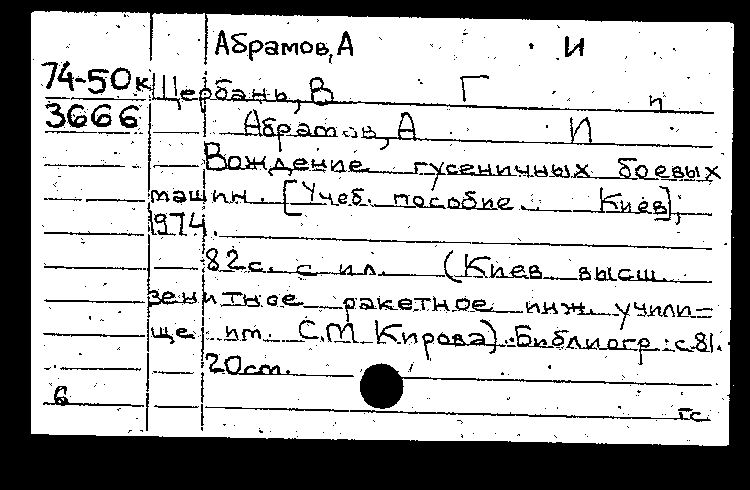 Абрамов, А. И
74-50к Щербань, В Г п
3666 Абрамов, А И
Вождение гусеничных боевых
машин. [Учеб. пособие. Киев],
1974.
82с. с ил. (Киев. высш.
зенитное ракетное инж. учили=
ще им. С.М Кирова). Библиогр.: с.81.
20см.
6 гс